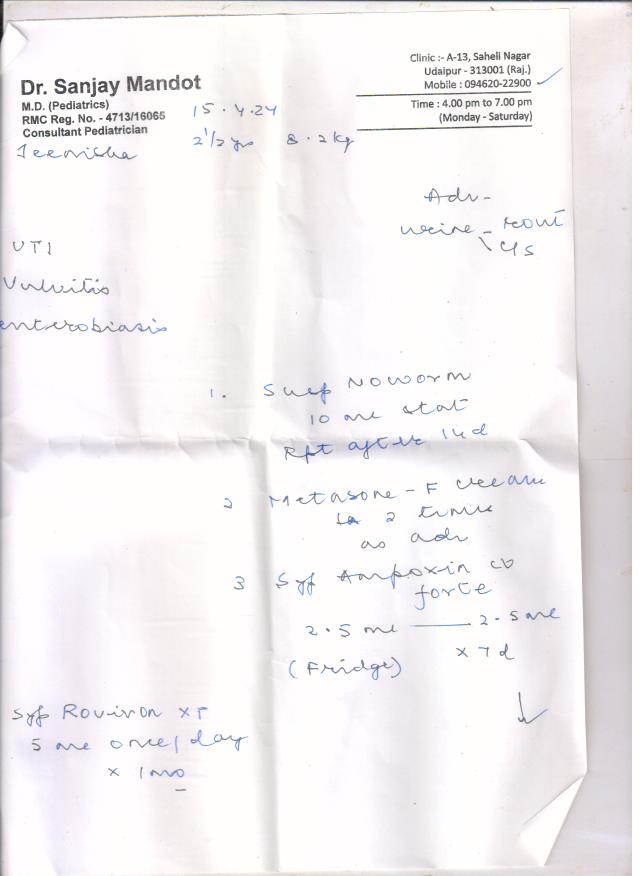 Dr. Sanjay Mandot
M.D. (Pediatrics)
RMC Reg. No. - 4713/16065
Consultant Pediatrician
Clinic :- A-13, Saheli Nagar
Udaipur - 313001 (Raj.)
Mobile : 094620-22900
Time : 4.00 pm to 7.00 pm
(Monday - Saturday)
15.4.24
2 1/2 yrs 8.2 kg
Jeenisha
Adv-
urine - rout
c/s
UTI
Vulvitis
enterobiasis
1. Susp Noworm
10 ml stat
Rpt after 14 d
2 Metasone-F cream
2 times
as adv
3 Syp Ampoxin CV
forte
2.5 ml — 2.5 ml
(Fridge) x 7 d
Syp XT
5 ml once/day
x 1 mo